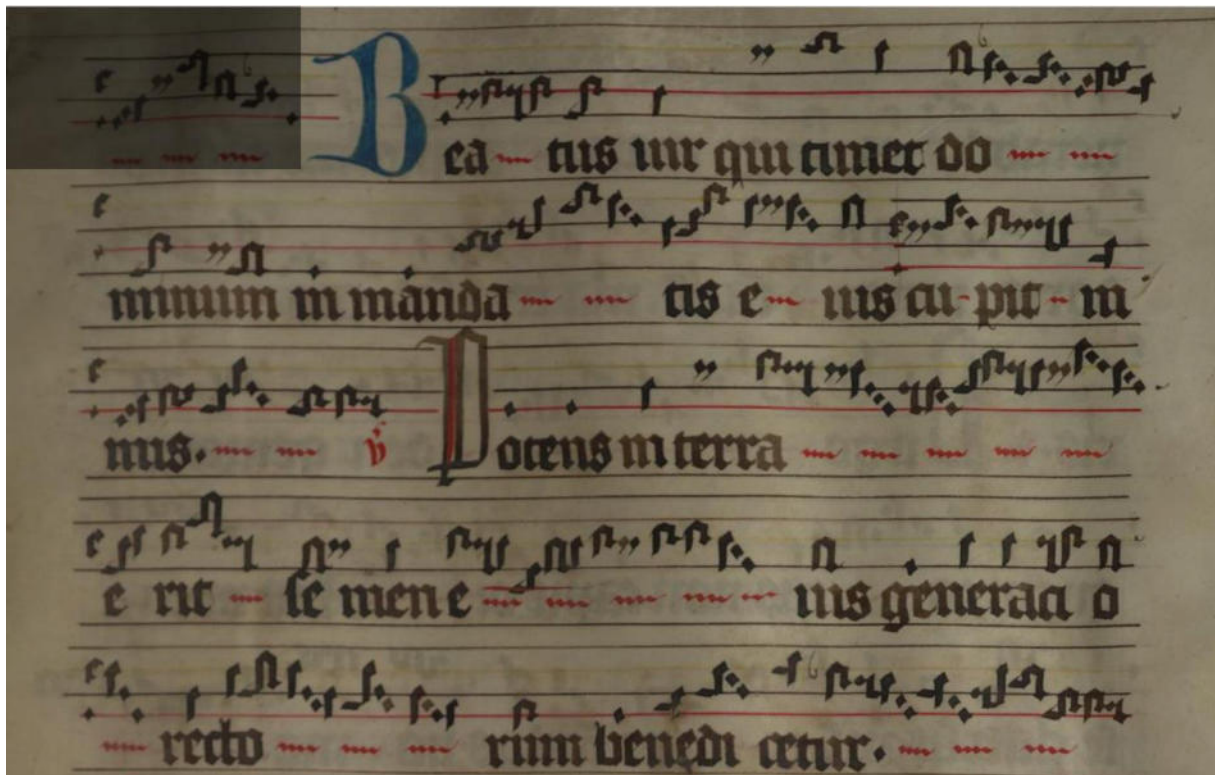 Bea tus uir qui timet do
minum in manda tis e ius cu pit in
mis. ꝟ Potens in terra
e rit se men e ius generaci o
recto rum benedi cetur.